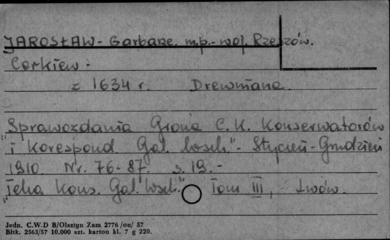 JAROSŁAW - Garbarze. mp. - woj. Rzeszów.
Cerkiew -
z 1634 r. Drewniana.
"Sprawozdania Grona C. K. Konserwatorów
i Korespond. Gal. wsch." - Styczeń - Grudzień
1910. Nr. 76-87. s. 19. -
"Teka Kons. Gal. wsch." Tom III, - Lwów.
Jedn. C.W.D B/Olsztyn Zam 2776 /on/ 57
Bltk. 2563/57 10.000 szt. karton kl. 7 g 220.